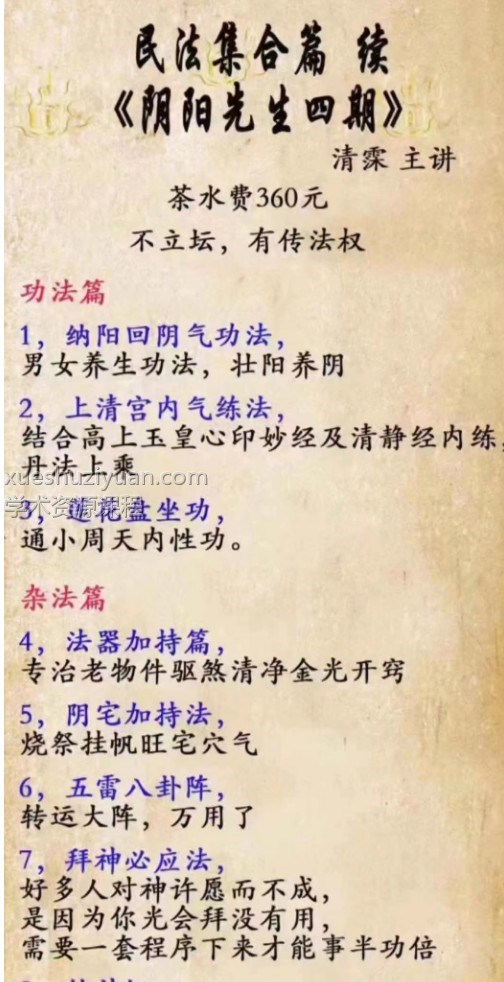 民法集合篇 续
《阴阳先生四期》
清霂 主讲
茶水费360元
不立坛，有传法权
功法篇
1，纳阳回阴气功法，
男女养生功法，壮阳养阴
2，上清宫内气练法，
结合高上玉皇心印妙经及清静经内练，
丹法上乘
xueshuziyuan.com
学术资源课程
3，莲花盘坐功，
通小周天内性功。
杂法篇
4，法器加持篇，
专治老物件驱煞清净金光开窍
5，阴宅加持法，
烧祭挂帆旺宅穴气
6，五雷八卦阵，
转运大阵，万用了
7，拜神必应法，
好多人对神许愿而不成，
是因为你光会拜没有用，
需要一套程序下来才能事半功倍